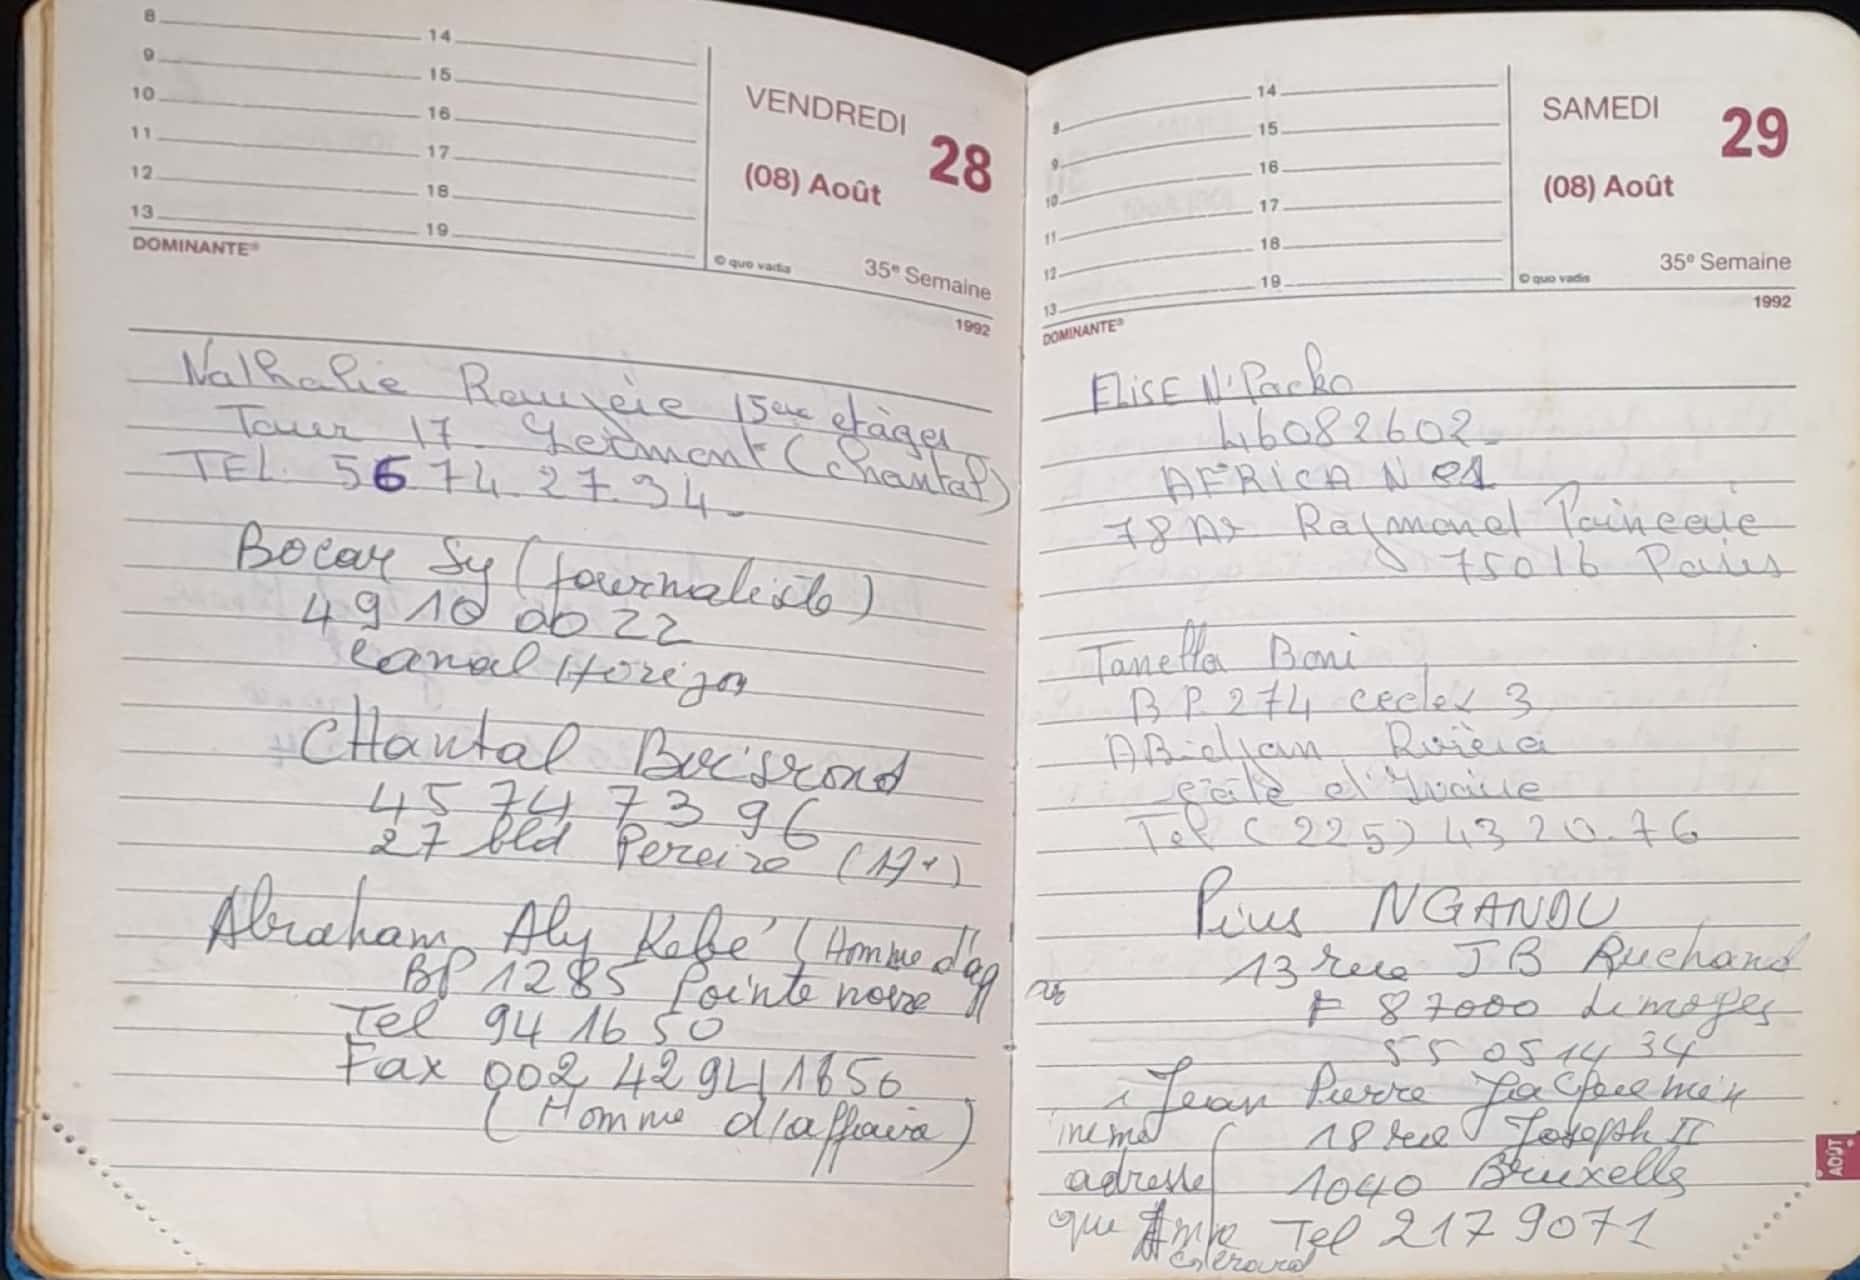 8 14
9 15
10 16
11 17
12 18
13 19
DOMINANTE®
VENDREDI 28
(08) Août
© quo vadis
35e Semaine
1992
Nathalie 15em etages
Tour 17. (chantal)
TEL. 56 74 27.34.
Bocar Sy (journaliste)
49 10 00 22
Canal Horizon
CHantal Boisrond
45 74 73 96
27 bld Pereire (17e)
Abraham Aly Kebé (Homme d'aff
BP 1285 Pointe noire
Tel 94 16 50
Fax 002 42 94 1650
(Homme d'affaire)
8 14
9 15
10 16
11 17
12 18
13 19
DOMINANTE®
SAMEDI 29
(08) Août
© quo vadis
35e Semaine
1992
ELISE N'Packo
46082602-
AFRICA N°1
78 Av Raymond Poincarie
75016 Paris
Tanella Boni
B P. 274 cedex 3
ABidjan Rivièra
côte d'Ivoire
Tel (225) 43 20.76
Pius NGANDU
13 rue J B Ruchand
F 87000 Limoges
55 05 14 34
Jean Pierre Jacquemin
18 rue Joseph II
1040 Bruxelles
Tel 217 9071
adresse
que
AOÛT